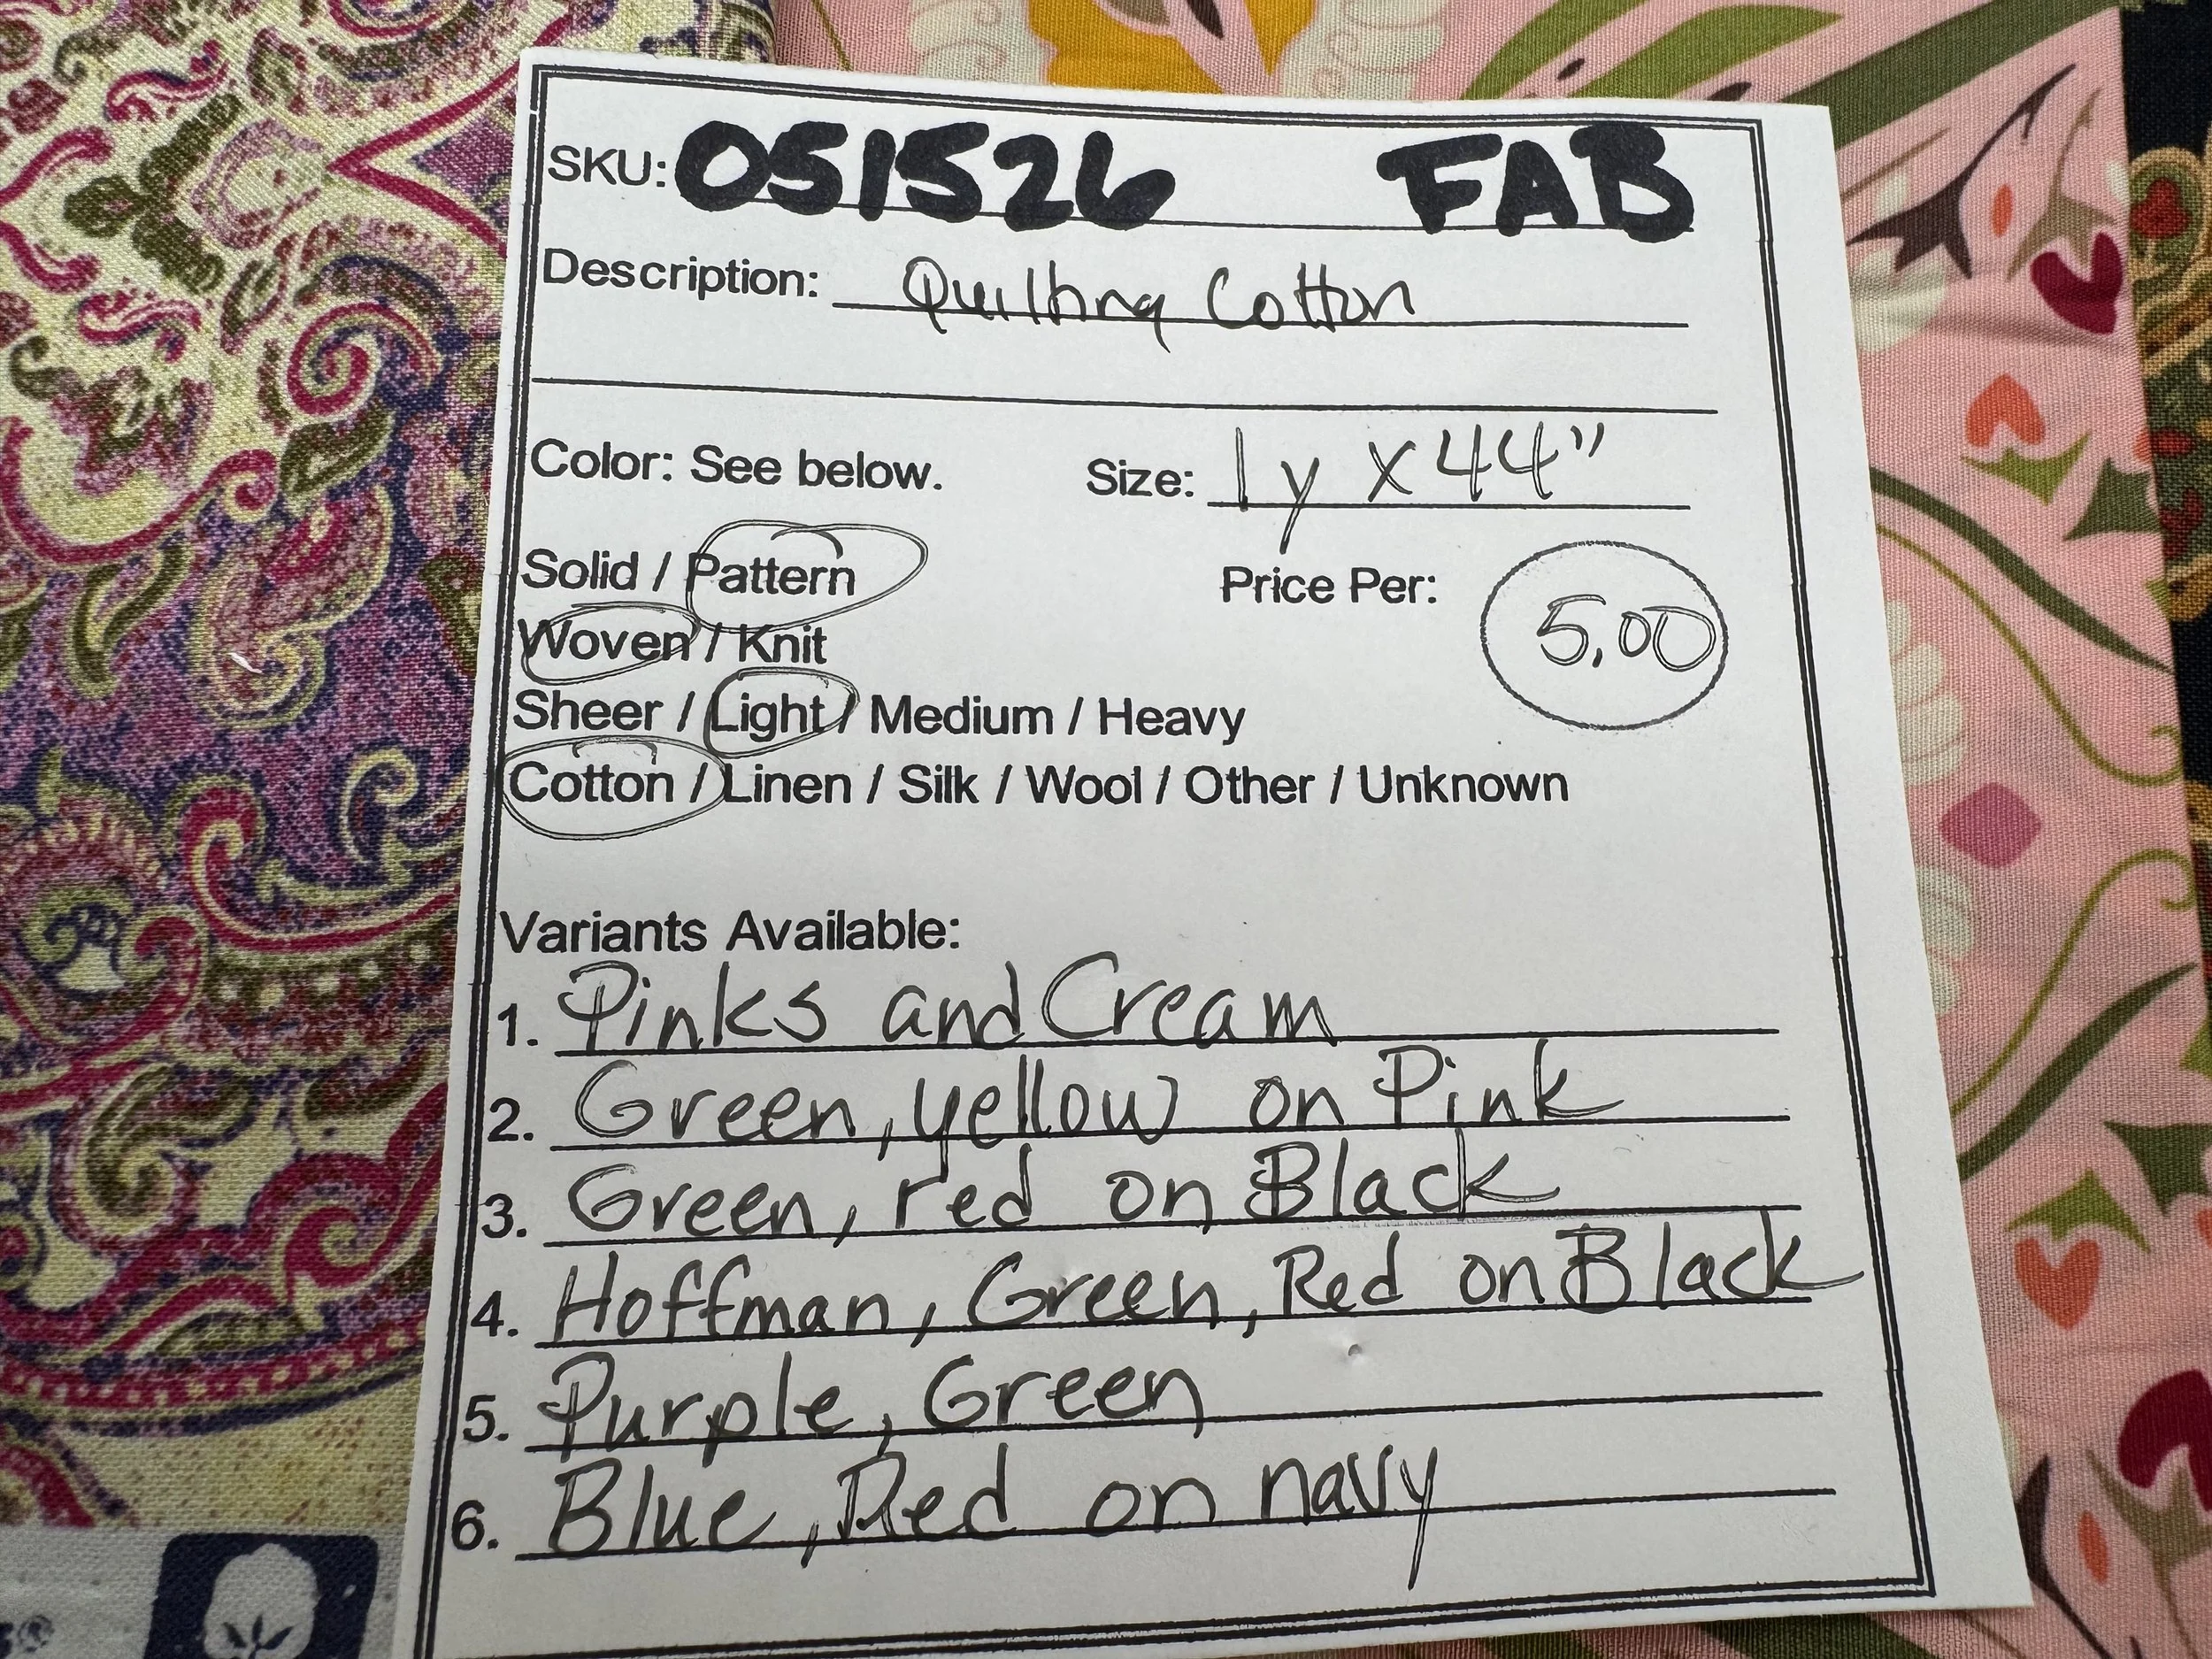 SKU: 051526 FAB
Description: Quilting Cotton
Color: See below. Size: 1y x 44"
Solid / Pattern Price Per: 5.00
Woven / Knit
Sheer / Light / Medium / Heavy
Cotton / Linen / Silk / Wool / Other / Unknown
Variants Available:
1. Pinks and Cream
2. Green, yellow on Pink
3. Green, red on Black
4. Hoffman, Green, Red on Black
5. Purple, Green
6. Blue, Red on navy